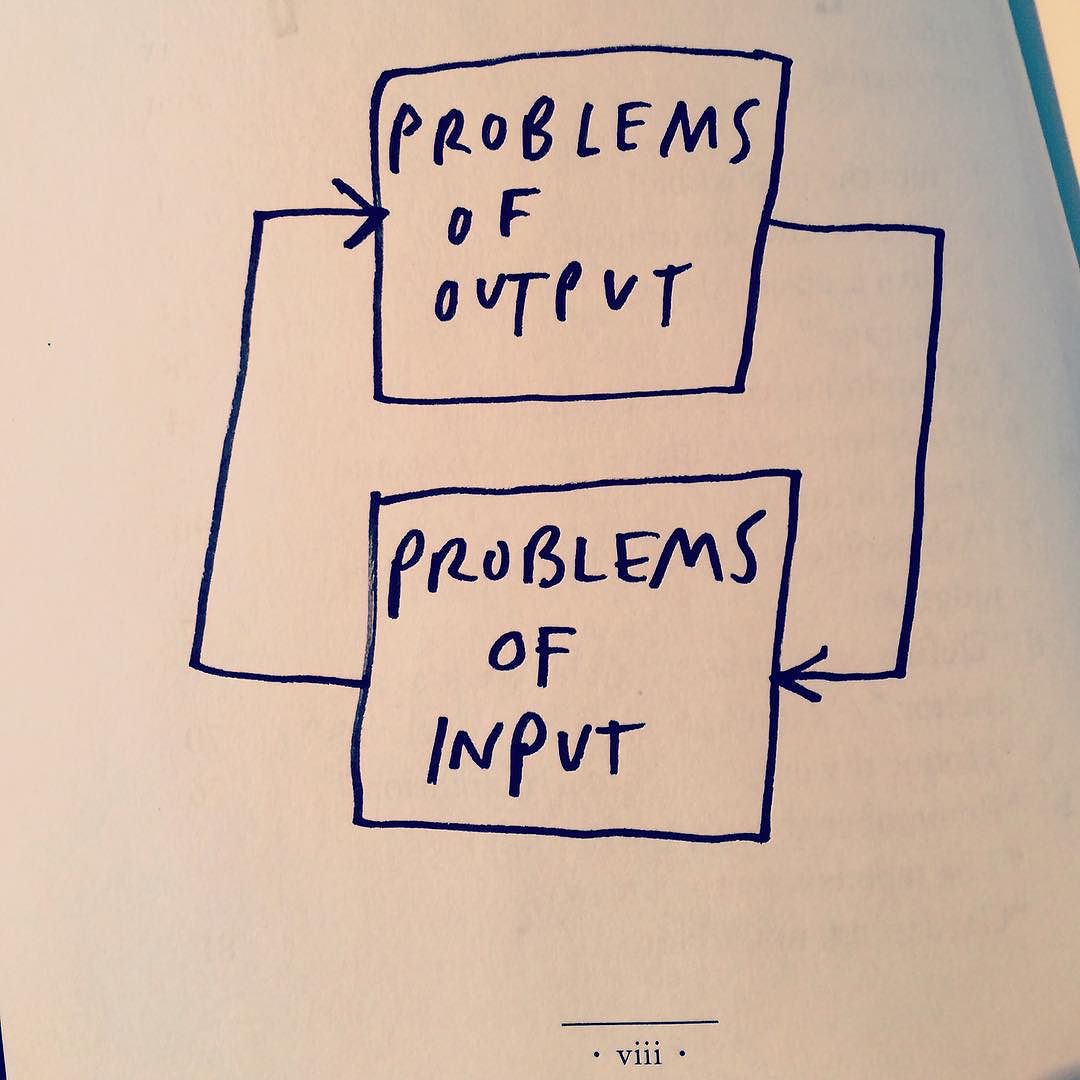 PROBLEMS
OF
OUTPUT
PROBLEMS
OF
INPUT
· viii ·